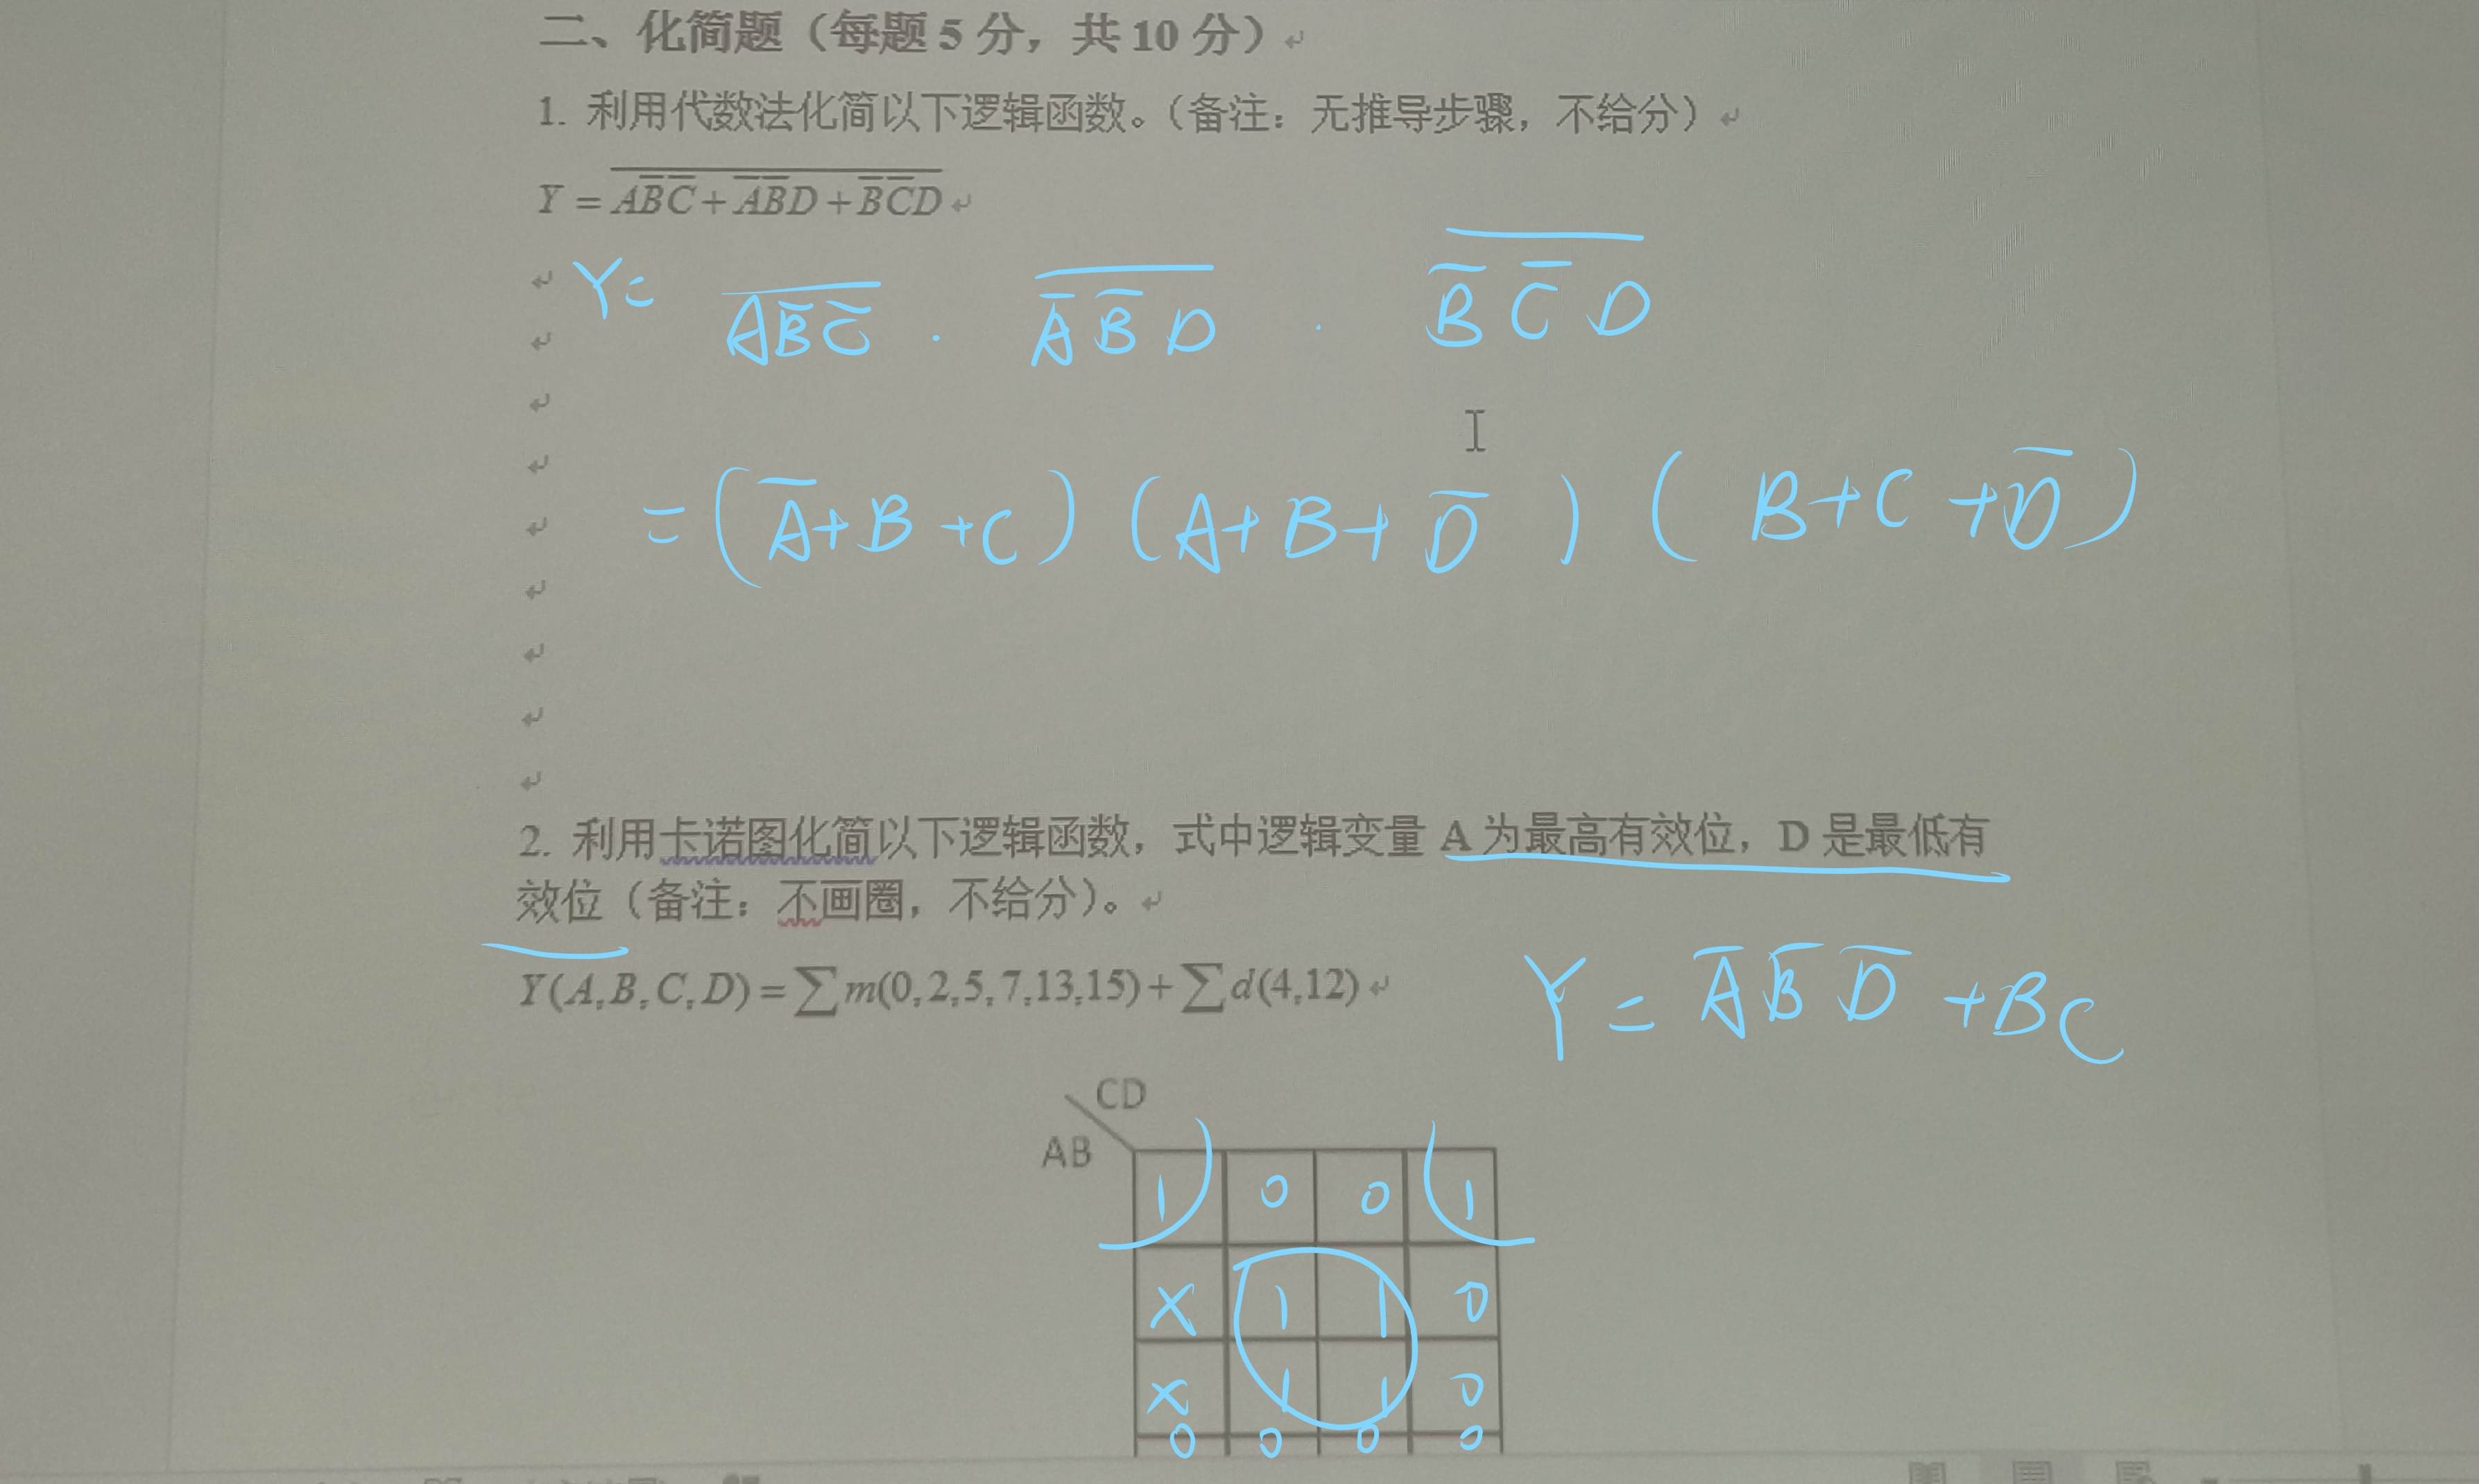 二、化简题（每题 5 分，共 10 分）
1. 利用代数法化简以下逻辑函数。（备注：无推导步骤，不给分）
Y = \overline{A\overline{B}\,\overline{C} + \overline{A}\,\overline{B}D + \overline{B}\,\overline{C}D}
Y = \overline{A\overline{B}\,\overline{C}} · \overline{\overline{A}\,\overline{B}D} · \overline{\overline{B}\,\overline{C}D}
= (\overline{A}+B+C)(A+B+\overline{D})(B+C+\overline{D})
2. 利用卡诺图化简以下逻辑函数，式中逻辑变量 A 为最高有效位，D 是最低有
效位（备注：不画圈，不给分）。
Y(A,B,C,D) = ∑m(0,2,5,7,13,15) + ∑d(4,12)
Y = \overline{A}\,\overline{B}\,\overline{D} + BC
CD
AB
1 0 0 1
X 1 1 0
X 1 1 0
0 0 0 0